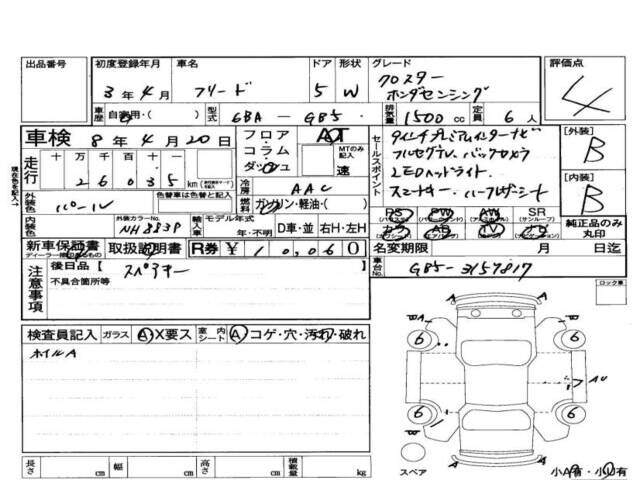 出品番号 初度登録年月 車名 ドア 形状 グレード 評価点
3年4月 フリード 5 W クロスター
ホンダセンシング 4
車歴 自家用・( ) 型式 6BA-GB5 排気量 1500cc 定員 6人
車検 8年4月20日 フロア・コラム・ダッシュ AT MTのみ記入 速
セールスポイント 9インチプレミアムインターナビ
フルセグTV、バックカメラ
LEDヘッドライト
スマートキー・ハーフレザーシート
[外装] B
[内装] B
走行 十 万 千 百 十
26035km
現在色を記入→ 外装色 パール 色替車は色替前の色 冷房 AAC
燃料 ガソリン・軽油・( )
内装色 外装カラーNo. NH883P 輸入車記入 モデル年式 年・不明 D車・並 右H・左H
PS PW AW SR
カワ AB TV ナビ
純正品のみ丸印
新車保証書 取扱説明書 R券 ¥10,060 名変期限 月 日迄
車台No. GB5-3157817
注意事項 後日品【スペアキー 】
不具合箇所等
ロック車
検査員記入 ガラス A・X要ス 室内シート A・コゲ・穴・汚れ・破れ
ホイルA
A A
6 6
AU
6 6
A A
スペア 小A有・小U有
長さ cm 幅 cm 高さ cm 積載量 kg